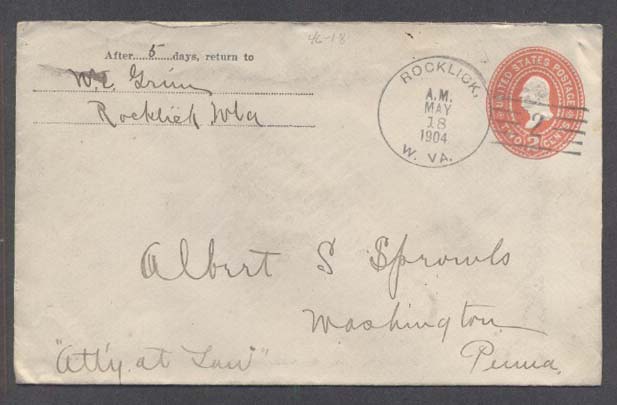 46-18
After 5 days, return to
W. E. Grim
Rocklick, W Va
ROCKLICK,
A.M.
MAY
18
1904
W. VA.
UNITED STATES POSTAGE
2 2
TWO CENTS
Albert S Sprowls
Washington
Penna.
"Att'y at Law"